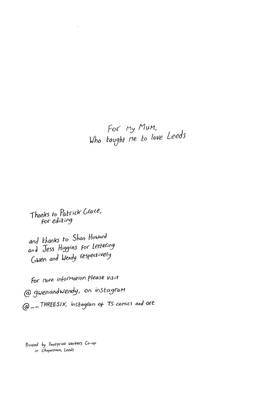 For my Mum,
Who taught me to love Leeds
Thanks to Patrick Grace,
for editing
and thanks to Shan Howard
and Jess Higgins for Lettering
Gwen and Wendy respectively
For more information please visit
@gwenandwendy, on instagram
THREESIX, instagram of TS comics and art
Printed by Footprint Workers Co-op
in Chapeltown, Leeds